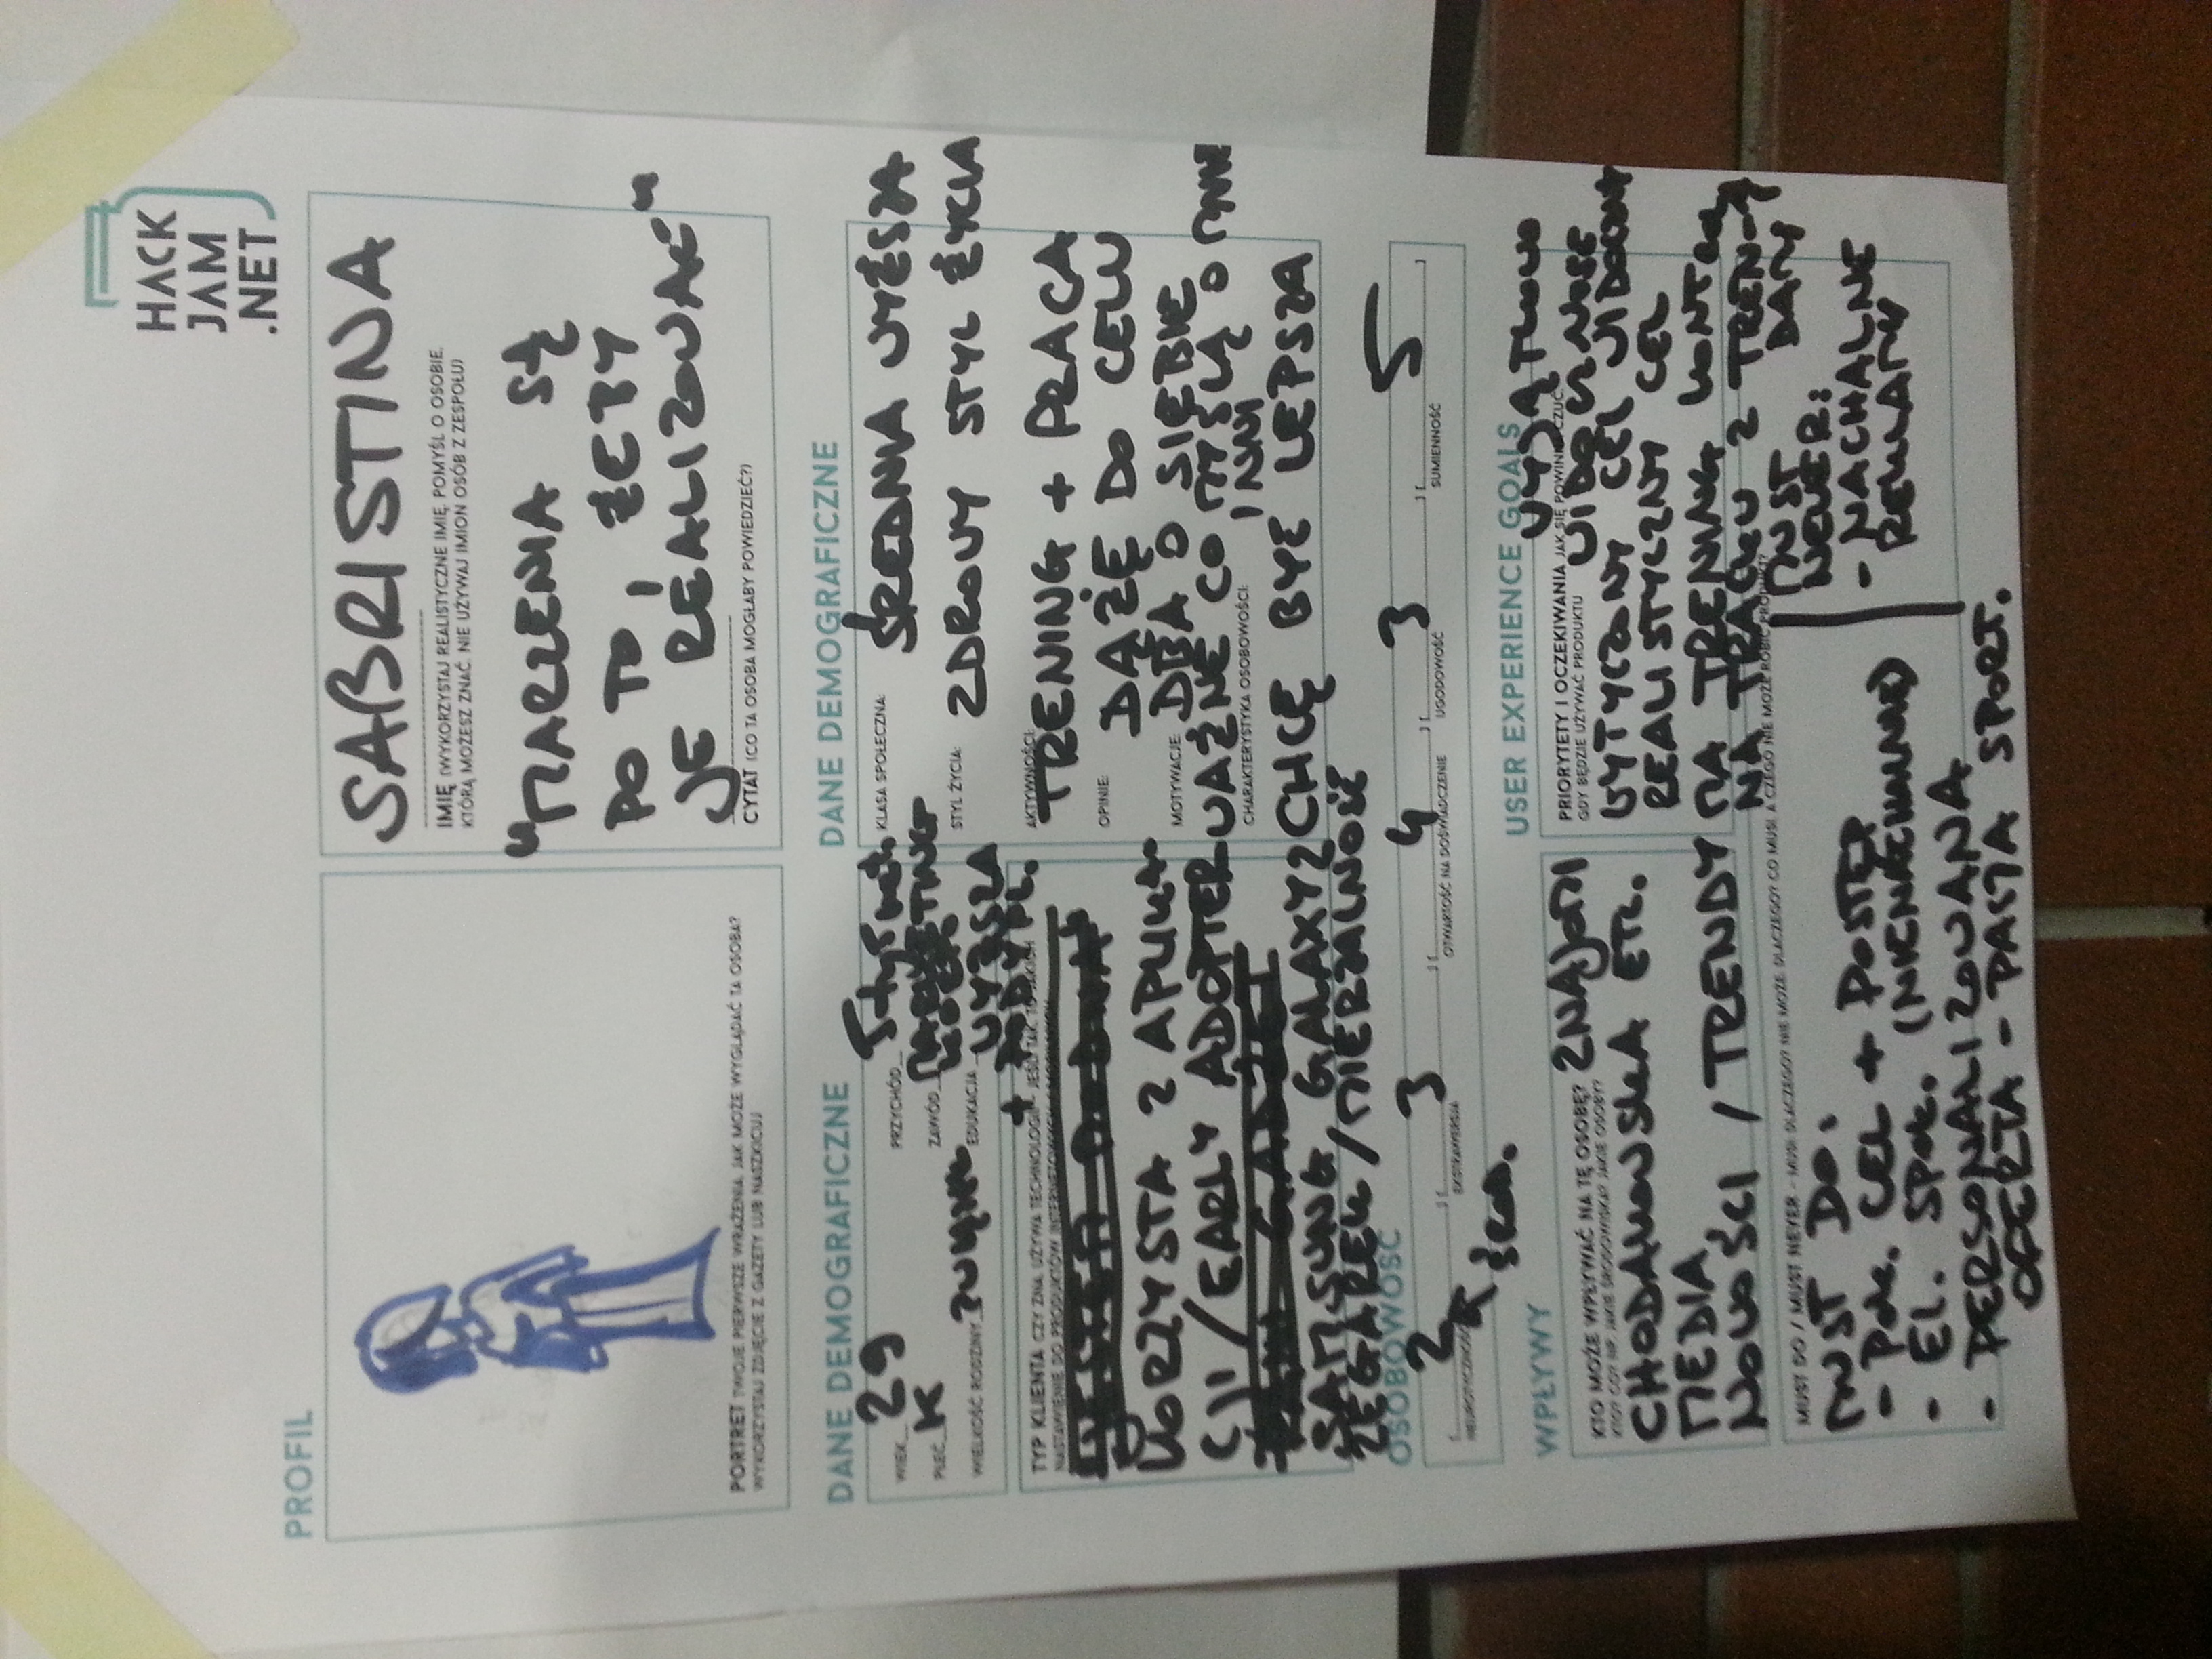 HACK
JAM
.NET
PROFIL
PORTRET TWOJE PIERWSZE WRAŻENIA. JAK MOŻE WYGLĄDAĆ TA OSOBA?
WYKORZYSTAJ ZDJĘCIE Z GAZETY LUB NASZKICUJ
SABRISTINA
IMIĘ (WYKORZYSTAJ REALISTYCZNE IMIĘ, POMYŚL O OSOBIE,
KTÓRĄ MOŻESZ ZNAĆ. NIE UŻYWAJ IMION OSÓB Z ZESPOŁU)
"MARZENIA SĄ
PO TO, ŻEBY
JE REALIZOWAĆ"
CYTAT (CO TA OSOBA MOGŁABY POWIEDZIEĆ?)
DANE DEMOGRAFICZNE
WIEK 29
PŁEĆ K
WIELKOŚĆ RODZINY
PRZYCHÓD
ZAWÓD MARKETING
EDUKACJA WYŻSZA
+ PODYPL.
TYP KLIENTA CZY ZNA, UŻYWA TECHNOLOGII, JEŚLI TAK, TO JAKICH
KORZYSTA Z APLIKA-
CJI / EARLY ADOPTER
SAMSUNG GALAXY
ZEGAREK / MIERZALNOŚĆ
DANE DEMOGRAFICZNE
KLASA SPOŁECZNA: ŚREDNIA WYŻSZA
STYL ŻYCIA: ZDROWY STYL ŻYCIA
AKTYWNOŚCI: TRENING + PRACA
OPINIE: DĄŻĘ DO CELU
MOTYWACJE: DBA O SIEBIE
WAŻNE CO MYŚLĄ O MNIE
INNI
CHARAKTERYSTYKA OSOBOWOŚCI:
CHCĘ BYĆ LEPSZA
OSOBOWOŚĆ
2 3 4 3 5
NEUROTYCZNOŚĆ EKSTRAWERSJA OTWARTOŚĆ NA DOŚWIADCZENIE UGODOWOŚĆ SUMIENNOŚĆ
WPŁYWY
KTO MOŻE WPŁYWAĆ NA TĘ OSOBĘ? ZNAJOMI
CHODAKOWSKA ETC.
MEDIA
NOWOŚCI / TRENDY
USER EXPERIENCE GOALS
PRIORYTETY I OCZEKIWANIA JAK SIĘ POWINIEN CZUĆ,
GDY BĘDZIE UŻYWAĆ PRODUKTU
WYTYCZONY CEL
REALISTYCZNY CEL
NA TRENING
MUST DO / MUST NEVER - MUSI DLACZEGO? NIE MOŻE DLACZEGO? CO MUSI A CZEGO NIE MOŻE ROBIĆ PRODUKT?
MUST DO:
- POK. CEL + POSTĘP
- EL. SPOŁ.
- PERSONALIZOWANA
OPERTA - PASTA SPORT.
MUST
NEVER:
- NACHALNE
REKLAMY